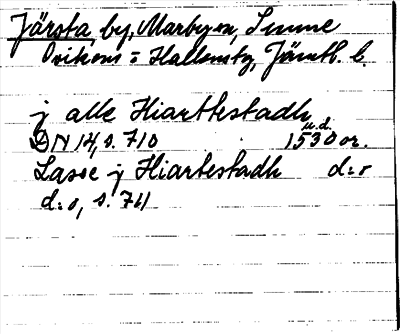 Järsta, by, Marby sn, Sunne
Ovikens o Hallens tg, Jämtl. l.
j alle Hiarttestadh
u.d.
DN 14, s. 710 1530 or.
Lasse j Hiartestadh d:o
d:o, s. 711